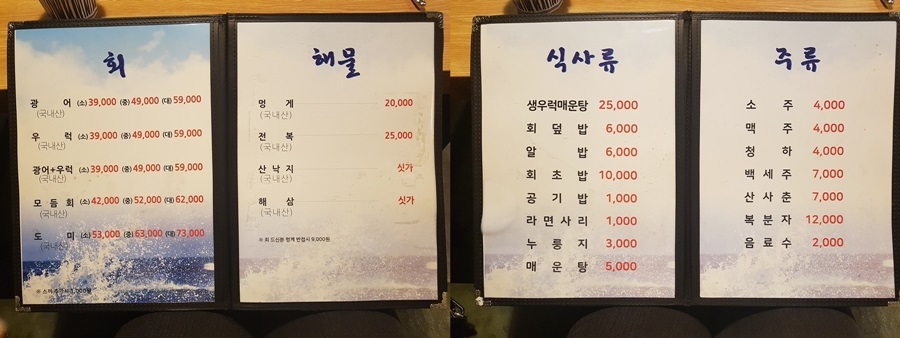 회
광 어 (소) 39,000 (중) 49,000 (대) 59,000
(국내산)
우 럭 (소) 39,000 (중) 49,000 (대) 59,000
(국내산)
광어+우럭 (소) 39,000 (중) 49,000 (대) 59,000
(국내산)
모 듬 회 (소) 42,000 (중) 52,000 (대) 62,000
(국내산)
도 미 (소) 53,000 (중) 63,000 (대) 73,000
(국내산)
해물
멍 게 20,000
(국내산)
전 복 25,000
(국내산)
산 낙 지 싯가
(국내산)
해 삼 싯가
(국내산)
※ 회 드신분 멍게 반접시 9,000원
식사류
생우럭매운탕 25,000
회 덮 밥 6,000
알 밥 6,000
회 초 밥 10,000
공 기 밥 1,000
라 면 사 리 1,000
누 룽 지 3,000
매 운 탕 5,000
주류
소 주 4,000
맥 주 4,000
청 하 4,000
백 세 주 7,000
산 사 춘 7,000
복 분 자 12,000
음 료 수 2,000